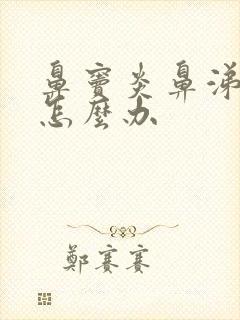 鼻竇炎鼻涕
怎麼办
鄭賽賽